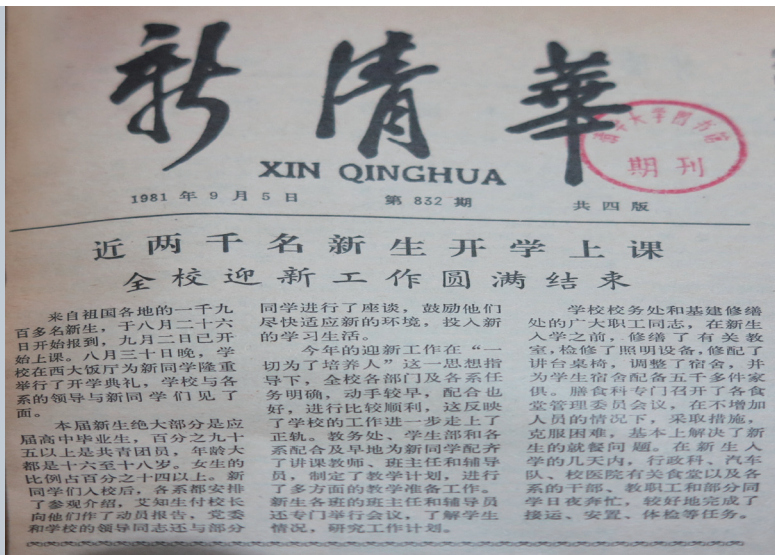 新清華
清华大学图书馆
期刊
XIN QINGHUA
1981年9月5日 第832期 共四版
近两千名新生开学上课
全校迎新工作圆满结束
来自祖国各地的一千九
百多名新生，于八月二十六
日开始报到，九月二日已开
始上课。八月三十日晚，学
校在西大饭厅为新同学隆重
举行了开学典礼，学校与各
系的领导与新同学们见了
面。
本届新生绝大部分是应
届高中毕业生，百分之九十
五以上是共青团员，年龄大
都是十六至十八岁。女生的
比例占百分之十四以上。新
同学们入校后，各系都安排
了参观介绍，艾知生付校长
向他们作了动员报告，党委
和学校的领导同志还与部分
同学进行了座谈，鼓励他们
尽快适应新的环境，投入新
的学习生活。
今年的迎新工作在“一
切为了培养人”这一思想指
导下，全校各部门及各系任
务明确，动手较早，配合也
好，进行比较顺利，这反映
了学校的工作进一步走上了
正轨。教务处、学生部和各
系配合及早地为新同学配齐
了讲课教师、班主任和辅导
员，制定了教学计划，进行
了多方面的教学准备工作。
新生各班的班主任和辅导员
还专门举行会议，了解学生
情况，研究工作计划。
学校校务处和基建修缮
处的广大职工同志，在新生
入学之前，修缮了有关教
室，检修了照明设备，修配了
讲台桌椅，调整了宿舍，并
为学生宿舍配备五千多件家
俱。膳食科专门召开了各食
堂管理委员会议，在不增加
人员的情况下，采取措施，
克服困难，基本上解决了新
生的就餐问题。在新生入
学的几天内，行政科、汽车
队、校医院有关食堂以及各
系的干部、教职工和部分同
学日夜奔忙，较好地完成了
接运、安置、体检等任务。